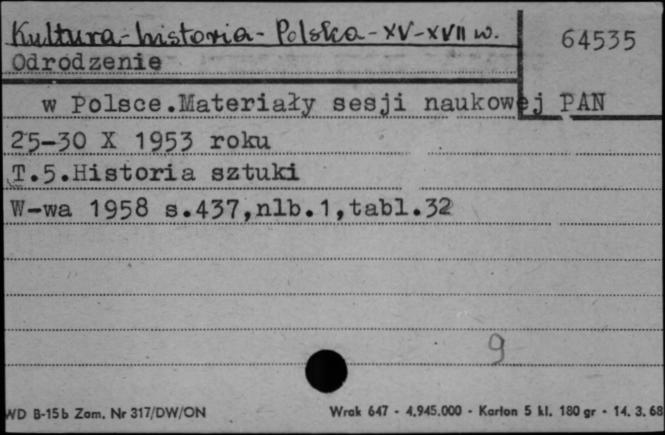 Kultura - historia - Polska - XV-XVII w.
64535
Odrodzenie
w Polsce.Materiały sesji naukowej PAN
25-30 X 1953 roku
T.5.Historia sztuki
W-wa 1958 s.437,nlb.1,tabl.32
9
WD B-15b Zam. Nr 317/DW/ON
Wrak 647 - 4.945.000 - Karton 5 kl. 180 gr - 14. 3. 68